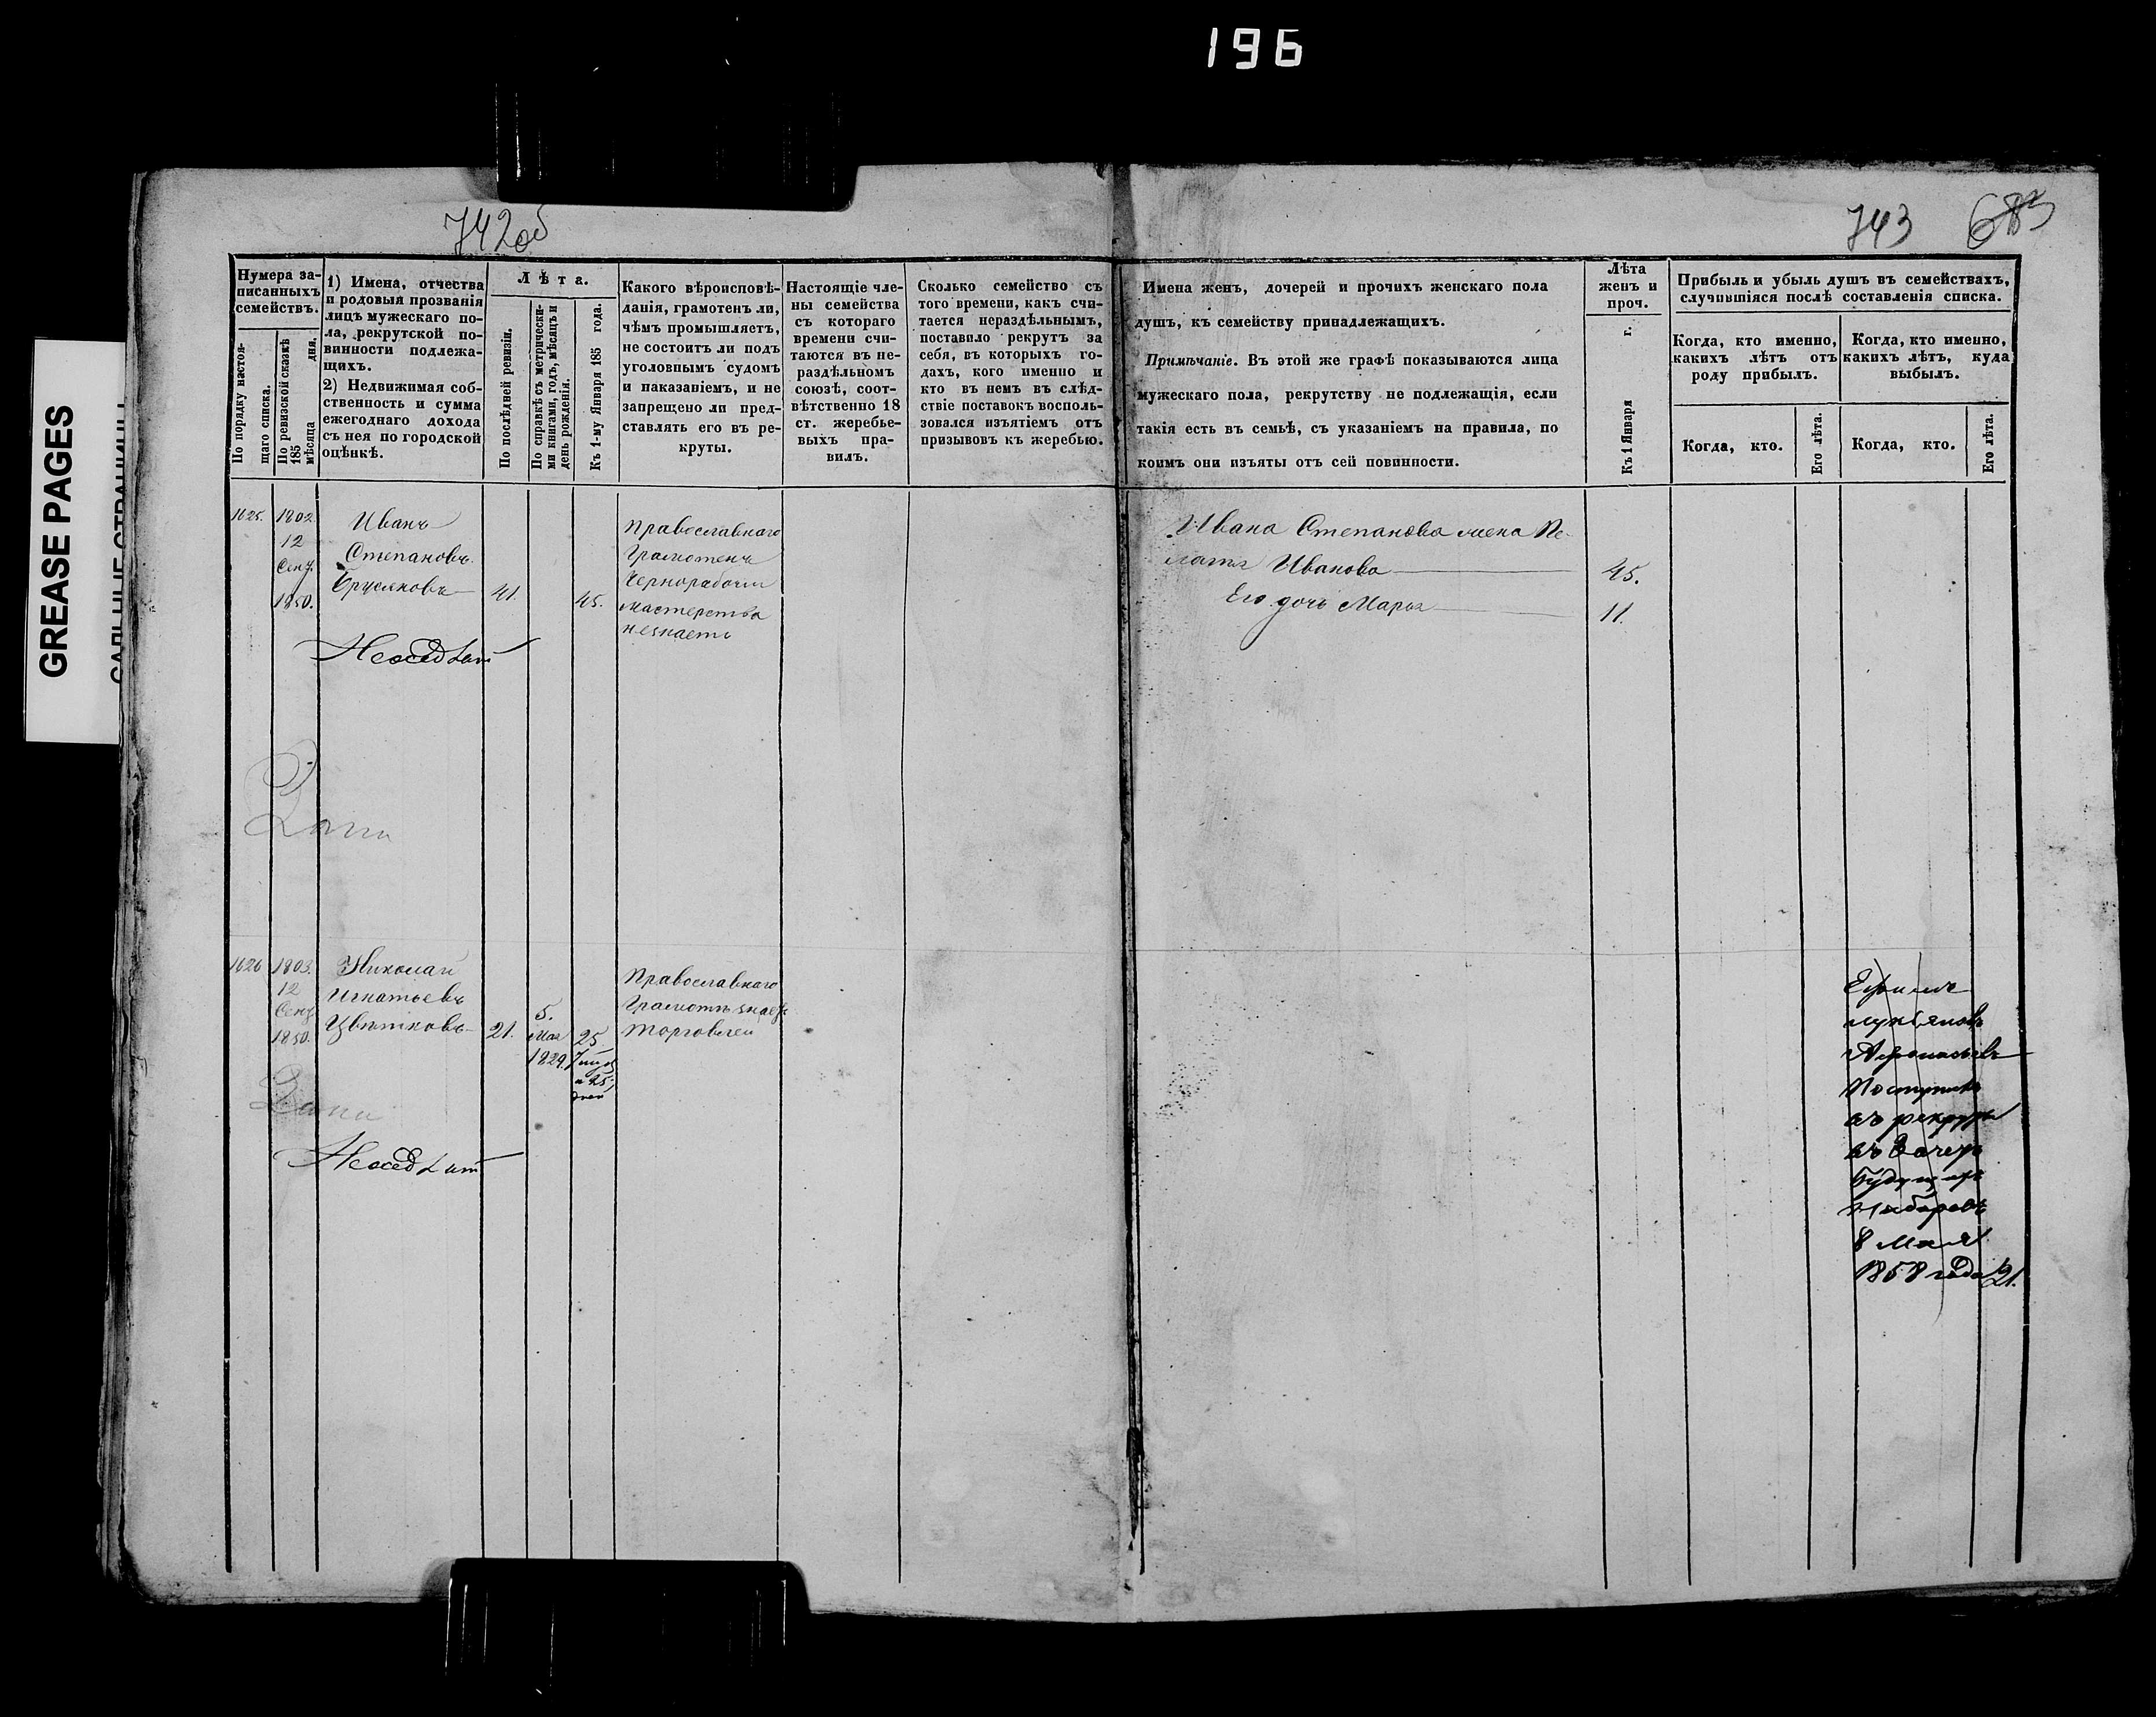 196
GREASE PAGES
742об
743
Нумера за-
писанныхъ
семействъ.
По порядку настоя-
щаго списка.
По ревизской сказкѣ
185 мѣсяца дня.
1) Имена, отчества
и родовыя прозванія
лицъ мужескаго по-
ла, рекрутской по-
винности подлежа-
щихъ.
2) Недвижимая соб-
ственность и сумма
ежегоднаго дохода
съ нея по городской
оцѣнкѣ.
Лѣта.
По послѣдней ревизіи.
По справкѣ съ метрически-
ми книгами, годъ, мѣсяцъ и
день рожденія.
Къ 1-му Января 185 года.
Какого вѣроисповѣ-
данія, грамотенъ ли,
чѣмъ промышляетъ,
не состоитъ ли подъ
уголовнымъ судомъ
и наказаніемъ, и не
запрещено ли пред-
ставлять его въ ре-
круты.
Настоящіе чле-
ны семейства
съ котораго
времени счи-
таются въ не-
раздѣльномъ
союзѣ, соот-
вѣтственно 18
ст. жеребье-
выхъ пра-
вилъ.
Сколько семейство съ
того времени, какъ счи-
тается нераздѣльнымъ,
поставило рекрутъ за
себя, въ которыхъ го-
дахъ, кого именно и
кто въ немъ въ слѣд-
ствіе поставокъ восполь-
зовался изъятіемъ отъ
призывовъ къ жеребью.
Имена женъ, дочерей и прочихъ женскаго пола
душъ, къ семейству принадлежащихъ.
Примѣчаніе. Въ этой же графѣ показываются лица
мужескаго пола, рекрутству не подлежащія, если
такія есть въ семьѣ, съ указаніемъ на правила, по
коимъ они изъяты отъ сей повинности.
Лѣта
женъ и
проч.
Къ 1 Января г.
Прибыль и убыль душъ въ семействахъ,
случившіяся послѣ составленія списка.
Когда, кто именно,
какихъ лѣтъ отъ
роду прибылъ.
Когда, кто именно,
какихъ лѣтъ, куда
выбылъ.
Когда, кто.
Его лѣта.
Когда, кто.
Его лѣта.
1625.
1802.
12
Сент.
1850.
Иванъ
Степановъ
41.
45.
Православнаго
Грамотенъ
Чернорабочій
мастерства
незнаетъ
Ивана Степанова жена Пе-
лагея Иванова
45.
Его дочь Марья
11.
1626
1803.
12
Сент.
1850.
Николай
Игнатьевъ
Цвѣтковъ
21.
5.
Мая
1829.
25.
7 мѣс.
и 25
дней
Православнаго
Грамотѣ знаетъ
торговлей
Ефимъ
Лукьяновъ
Афонасьевъ
Поступилъ
въ рекруты
въ зачетъ
будущихъ
наборовъ
8 Мая
1858 года
21.